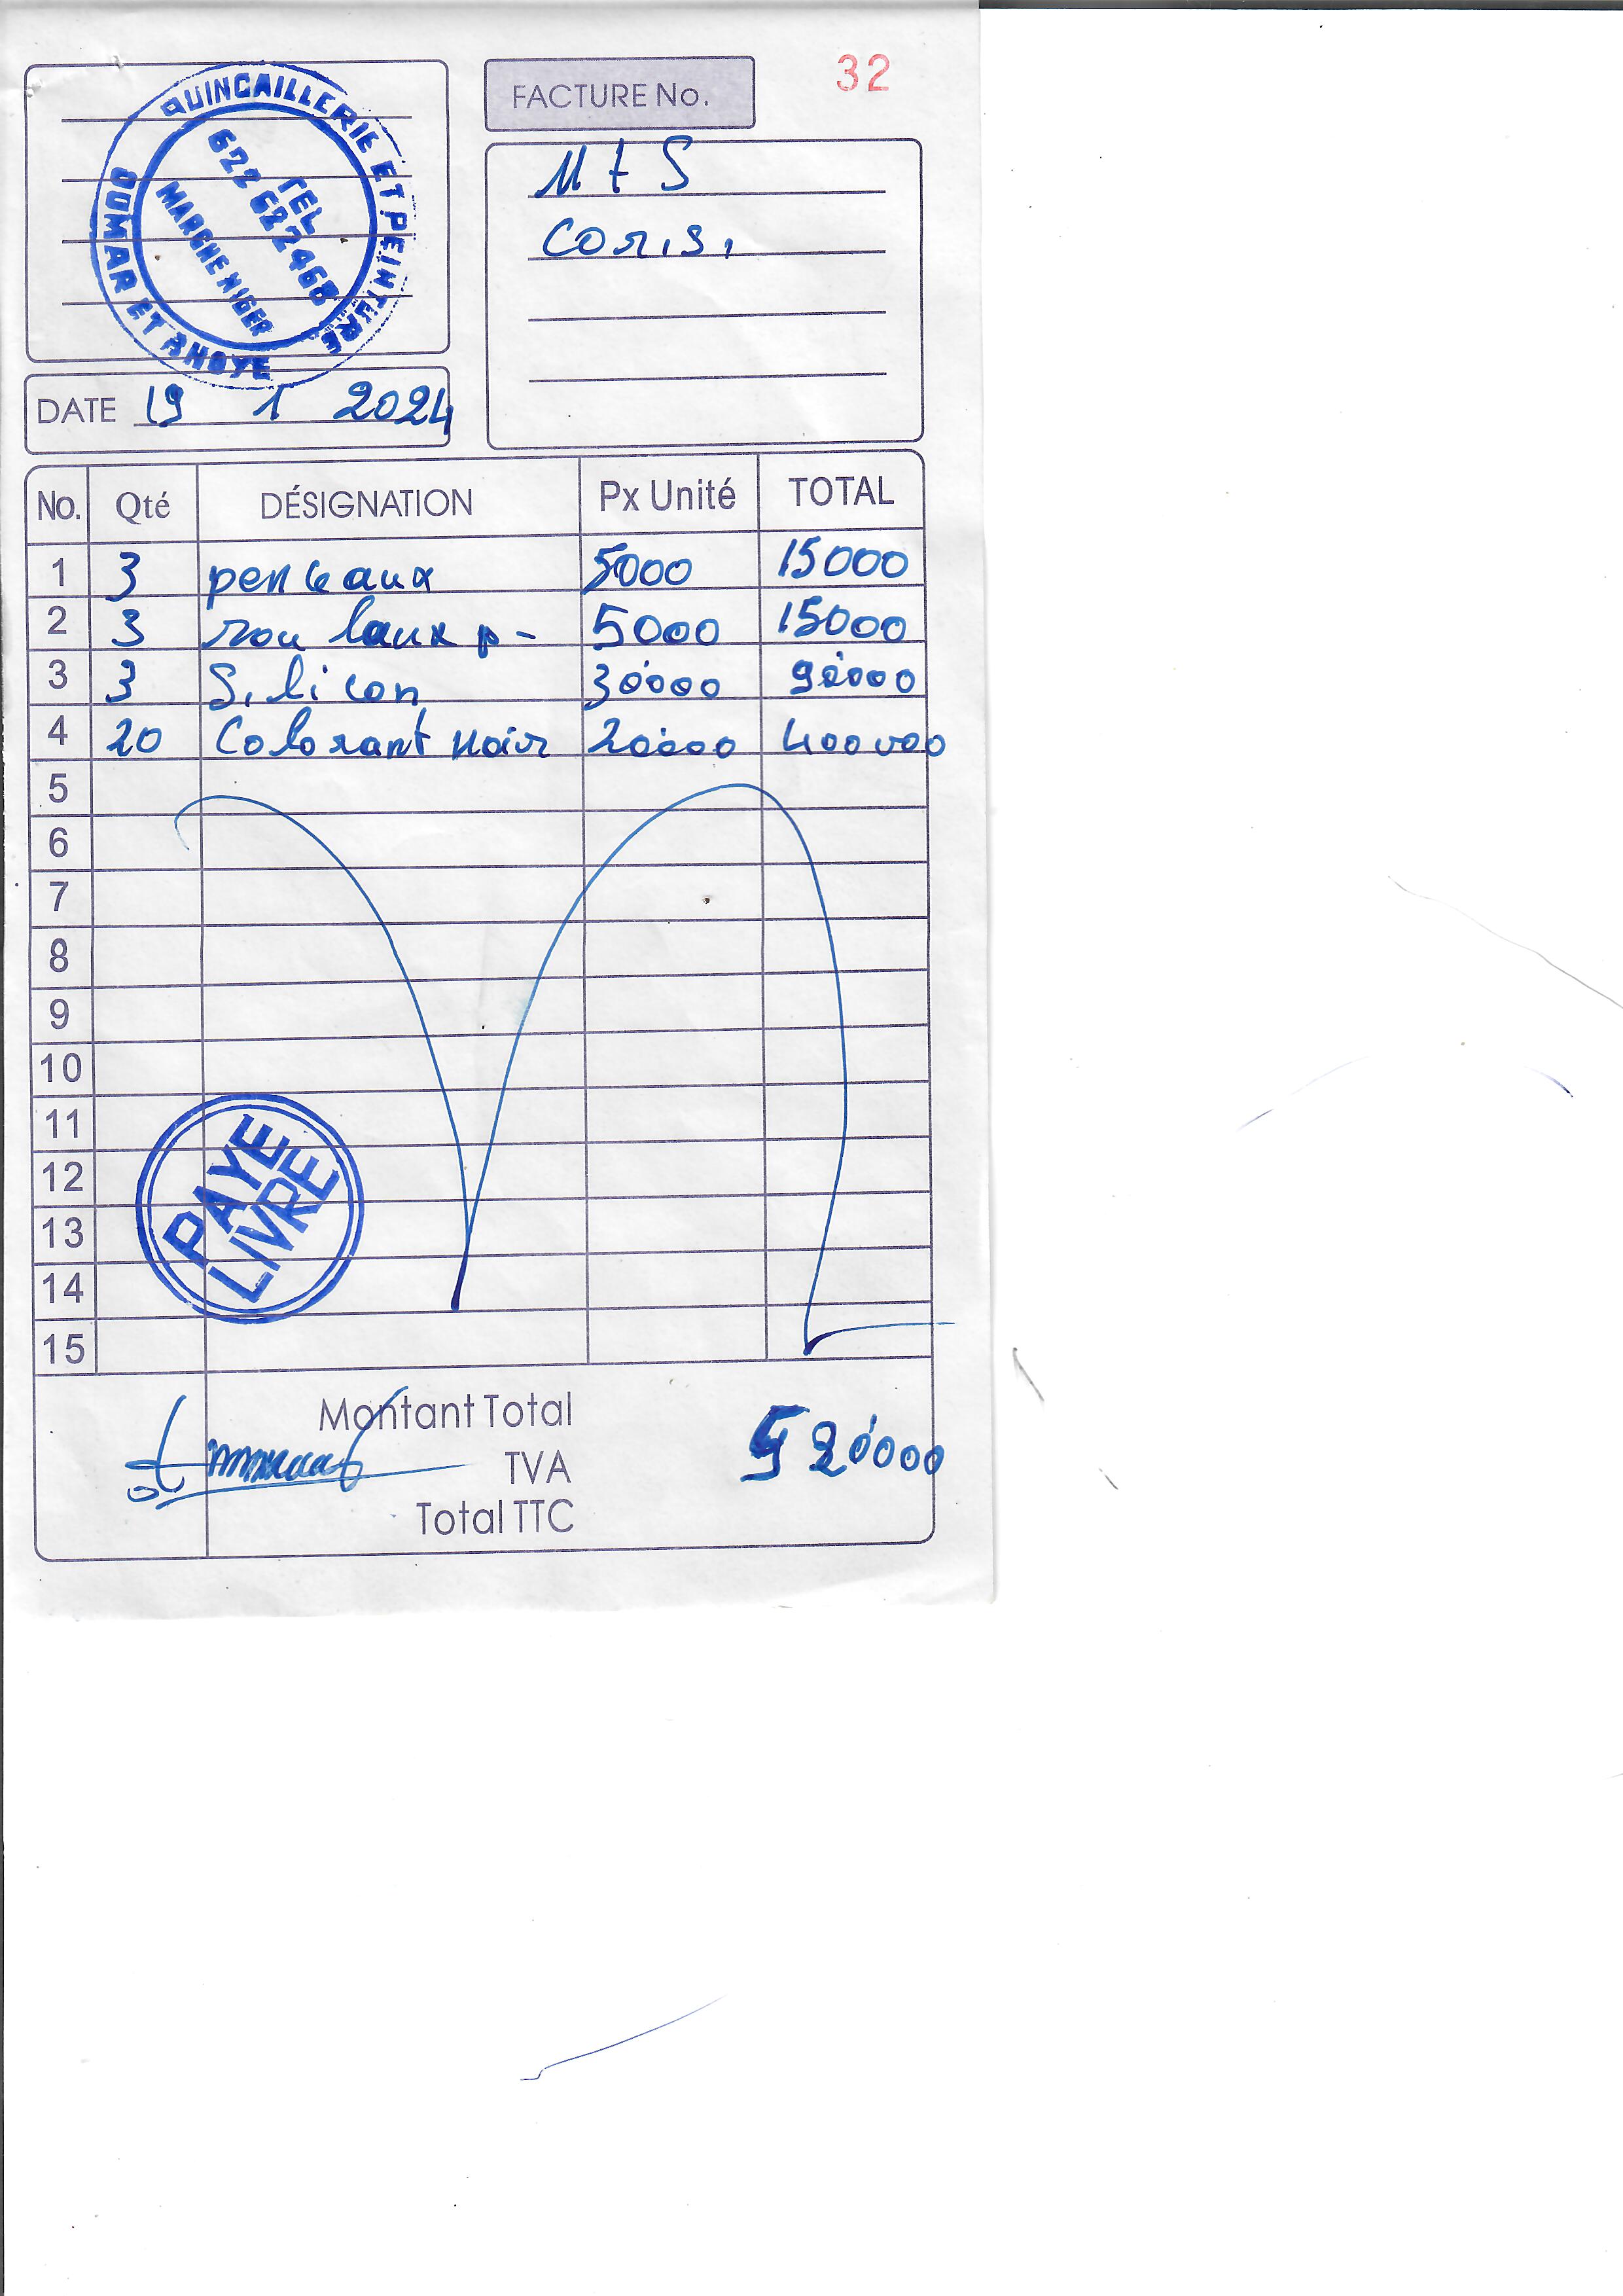 QUINCAILLERIE ET PEINTURE
OUMAR ET
TEL
622 622468
MARCHE NIGER
FACTURE No. 32
M t S
DATE 19 1 2024
No. Qté DÉSIGNATION Px Unité TOTAL
1 3 penceaux 5000 15000
2 3 rou laux p- 5000 15000
3 3 Silicon 30000 90000
4 20 Colorant noir 20000 400000
5
6
7
8
9
10
11
12
13
14
15
PAYE
LIVRE
Montant Total 520000
TVA
Total TTC